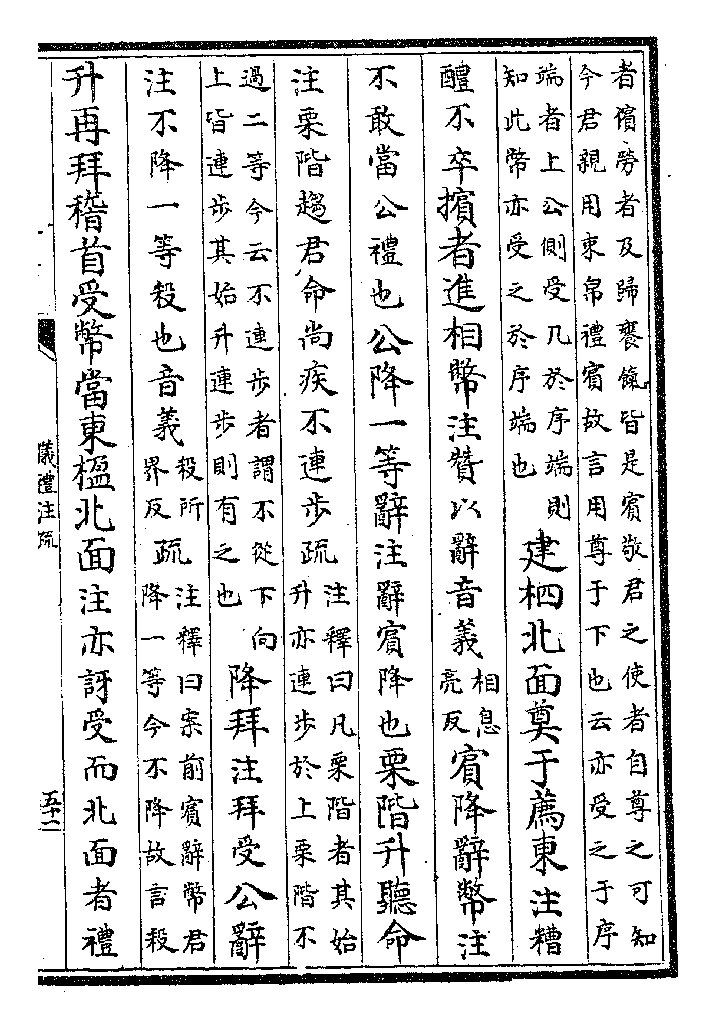 者儐勞者及歸饔餼皆是賓敬君之使者自尊之可知
今君親用束帛禮賓故言用尊于下也云亦受之于序
端者上公側受几於序端則
知此幣亦受之於序端也
建柶北面奠于薦東注糟
醴不卒擯者進相幣注贊以辭音義
相息
亮反
賓降辭幣注
不敢當公禮也公降一等辭注辭賓降也栗階升聽命
注栗階趨君命尚疾不連步疏
注釋曰凡栗階者其始
升亦連步於上栗階不
過二等今云不連步者謂不從下向
上皆連步其始升連步則有之也
降拜注拜受公辭
注不降一等殺也音義
殺所
界反
疏
注釋曰案前賓辭幣君
降一等今不降故言殺
升再拜稽首受幣當東楹北面注亦訝受而北面者禮
儀禮注疏
五十二